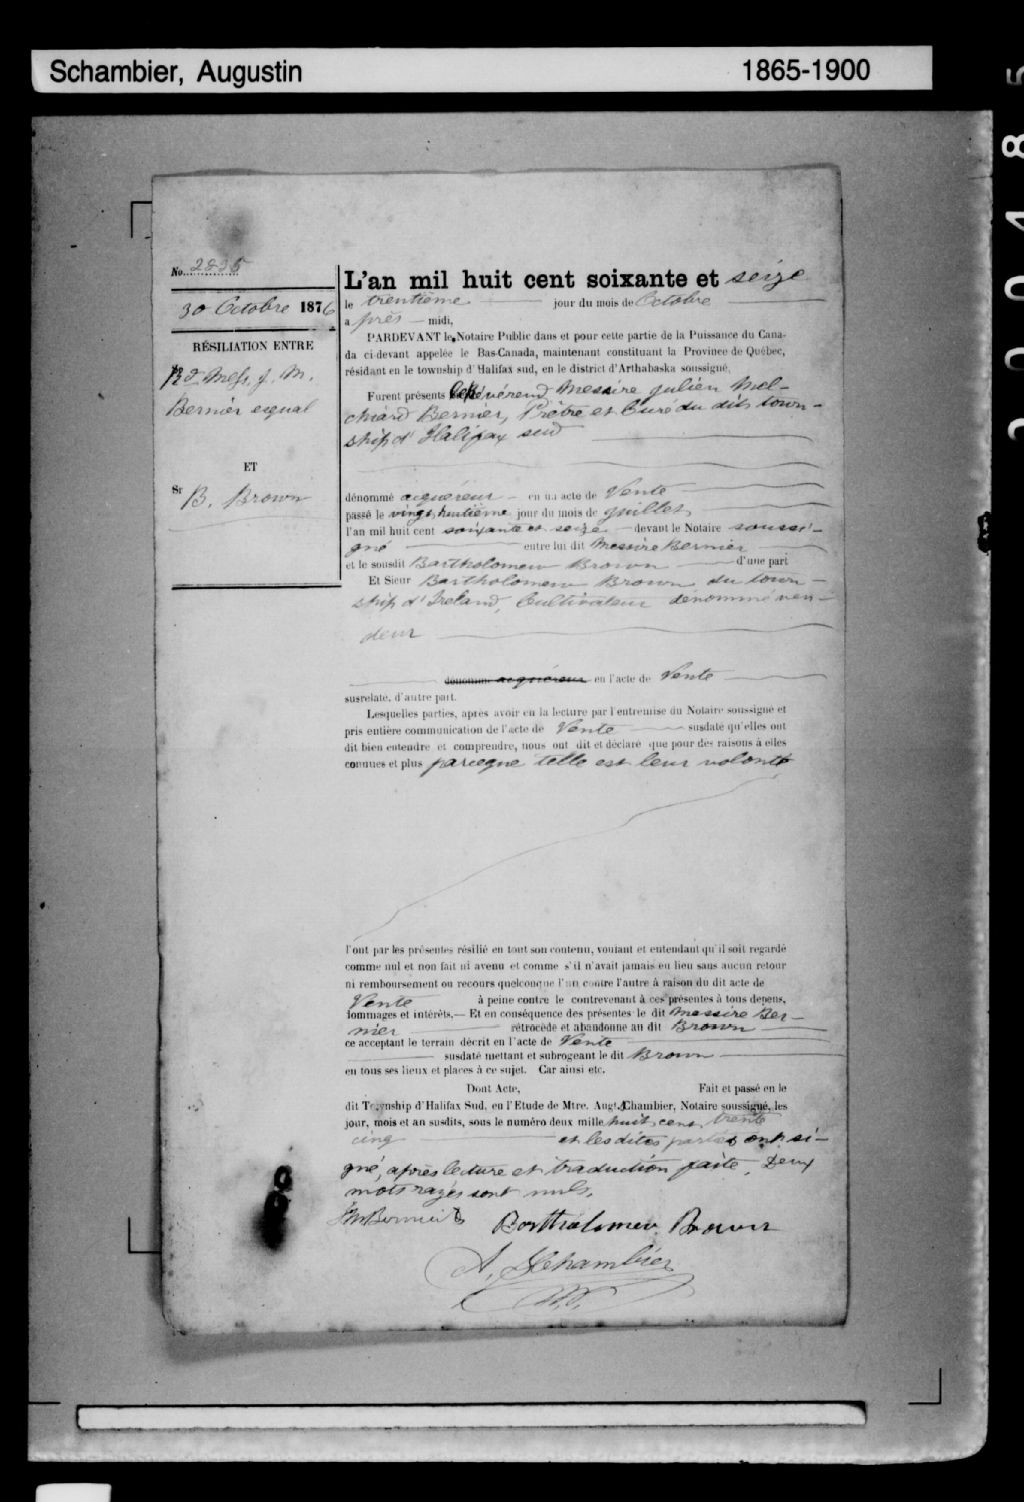 Schambier, Augustin 1865-1900
20485
No. 2835
30 Octobre 1876
RÉSILIATION ENTRE
Rd Mess. J. M.
Bernier
ET
Sr B. Brown
L'an mil huit cent soixante et seize
le trentième jour du mois de Octobre
a près midi,
PARDEVANT le Notaire Public dans et pour cette partie de la Puissance du Cana-
da ci-devant appelée le Bas-Canada, maintenant constituant la Province de Québec,
résidant en le township d'Halifax sud, en le district d'Arthabaska soussigné,
Furent présents Le Révérend Messire Julien Mel-
chiard Bernier, Prêtre et Curé du dit town-
ship d'Halifax sud
dénommé acquéreur en un acte de Vente
passé le vingt huitième jour du mois de juillet
l'an mil huit cent soixante et seize devant le Notaire soussi-
gné entre lui dit Messire Bernier
et le susdit Bartholomew Brown d'une part
Et Sieur Bartholomew Brown du town-
ship d'Ireland, Cultivateur dénommé ven-
deur
dénommé acquéreur en l'acte de Vente
susrelaté, d'autre part.
Lesquelles parties, après avoir eu la lecture par l'entremise du Notaire soussigné et
pris entière communication de l'acte de Vente susdaté qu'elles ont
dit bien entendre et comprendre, nous ont dit et déclaré que pour des raisons à elles
connues et plus parceque telle est leur volonté
l'ont par les présentes résilié en tout son contenu, voulant et entendant qu'il soit regardé
comme nul et non fait ni avenu et comme s'il n'avait jamais eu lieu sans aucun retour
ni remboursement ou recours quelconque l'un contre l'autre à raison du dit acte de
Vente à peine contre le contrevenant à ces présentes à tous dépens,
dommages et intérêts.— Et en conséquence des présentes le dit Messire Ber-
nier rétrocède et abandonne au dit Brown
ce acceptant le terrain décrit en l'acte de Vente
susdaté mettant et subrogeant le dit Brown
en tous ses lieux et places à ce sujet. Car ainsi etc.
Dont Acte, Fait et passé en le
dit Township d'Halifax Sud, en l'Etude de Mtre. Augt. Schambier, Notaire soussigné, les
jour, mois et an susdits, sous le numéro deux mille huit cent trente
cinq et les dites parties ont si-
gné, après lecture et traduction faite. Deux
mots rayés sont nuls.
JM Bernier Ptr Bartholomew Brown
A. Schambier
N.P.